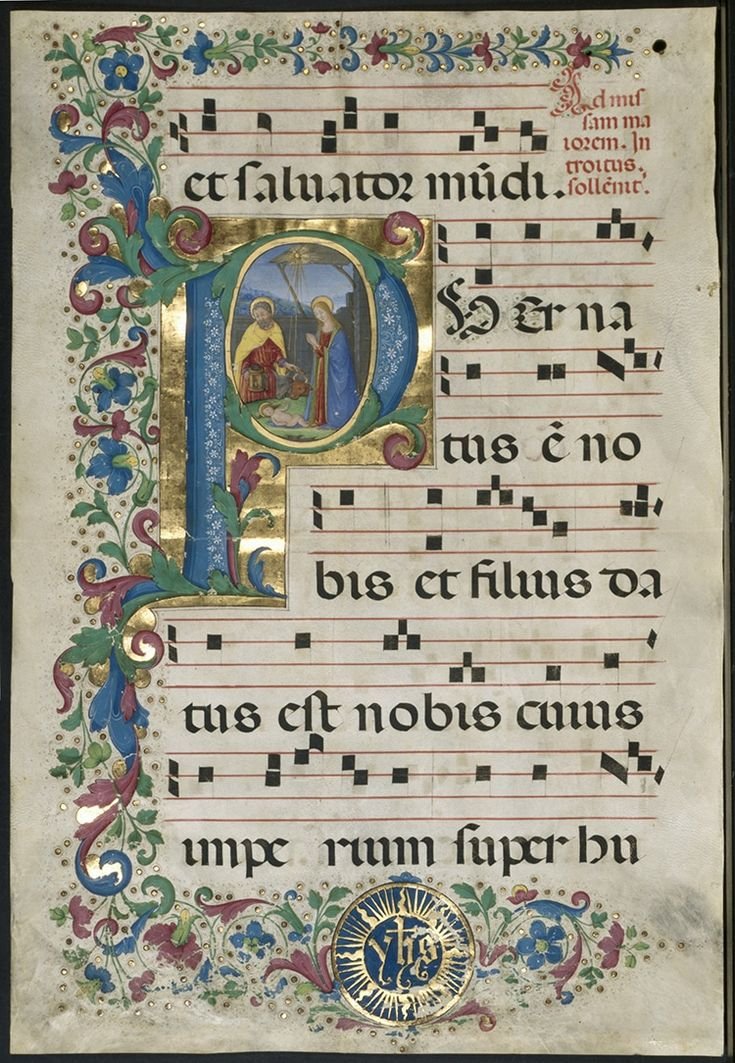 et saluator mūdi.
Ad mis
sam ma
iorem. In
troitus.
sollēnit̄.
PUer na
tus ē no
bis et filius da
tus est nobis cuius
impe rium super hu
yhs